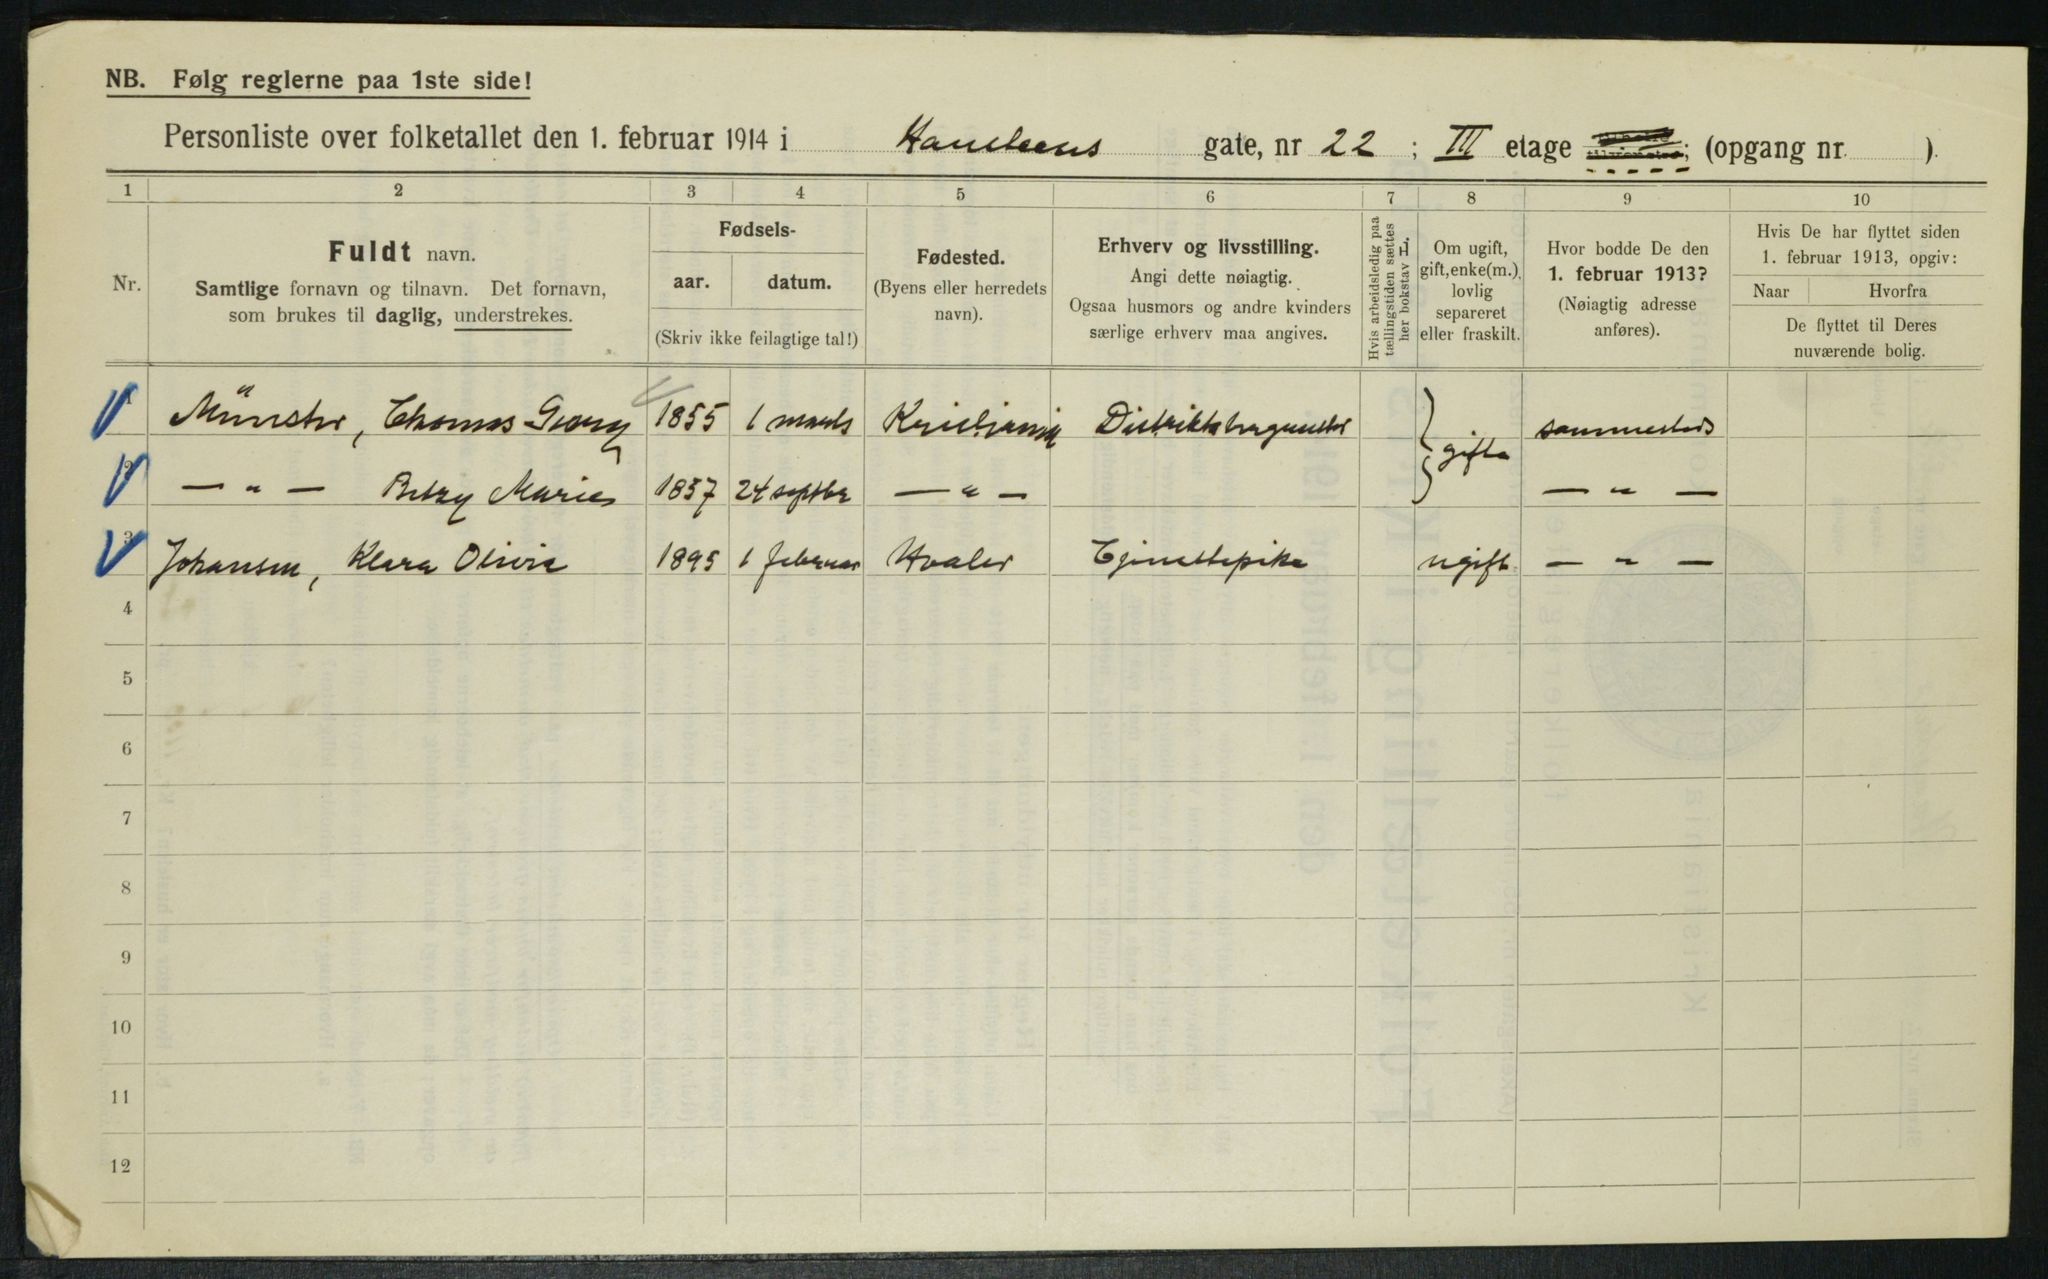 NB. Følg reglerne paa 1ste side!
Personliste over folketallet den 1. februar 1914 i Hansteens gate, nr 22 ; III etage ; (opgang nr. ).
1 2 3 4 5 6 7 8 9 10
Nr.
Fuldt navn.
Samtlige fornavn og tilnavn. Det fornavn,
som brukes til daglig, understrekes.
Fødsels-
aar. datum.
(Skriv ikke feilagtige tal!)
Fødested.
(Byens eller herredets
navn).
Erhverv og livsstilling.
Angi dette nøiagtig.
Ogsaa husmors og andre kvinders
særlige erhverv maa angives.
Hvis arbeidsledig paa
tællingstiden sættes
her bokstav L.
Om ugift,
gift, enke(m.),
lovlig
separeret
eller fraskilt.
Hvor bodde De den
1. februar 1913?
(Nøiagtig adresse
anføres).
Hvis De har flyttet siden
1. februar 1913, opgiv:
Naar Hvorfra
De flyttet til Deres
nuværende bolig.
1 Münster, Thomas Georg 1855 1 marts Kristiania Distriktsbergmester } gifte sammesteds
2 — " — Betzy Marie 1857 24 septbr — " — — " —
3 Johansen, Klara Olivia 1895 1 februar Hvaler Tjenestepike ugift — " —
4
5
6
7
8
9
10
11
12